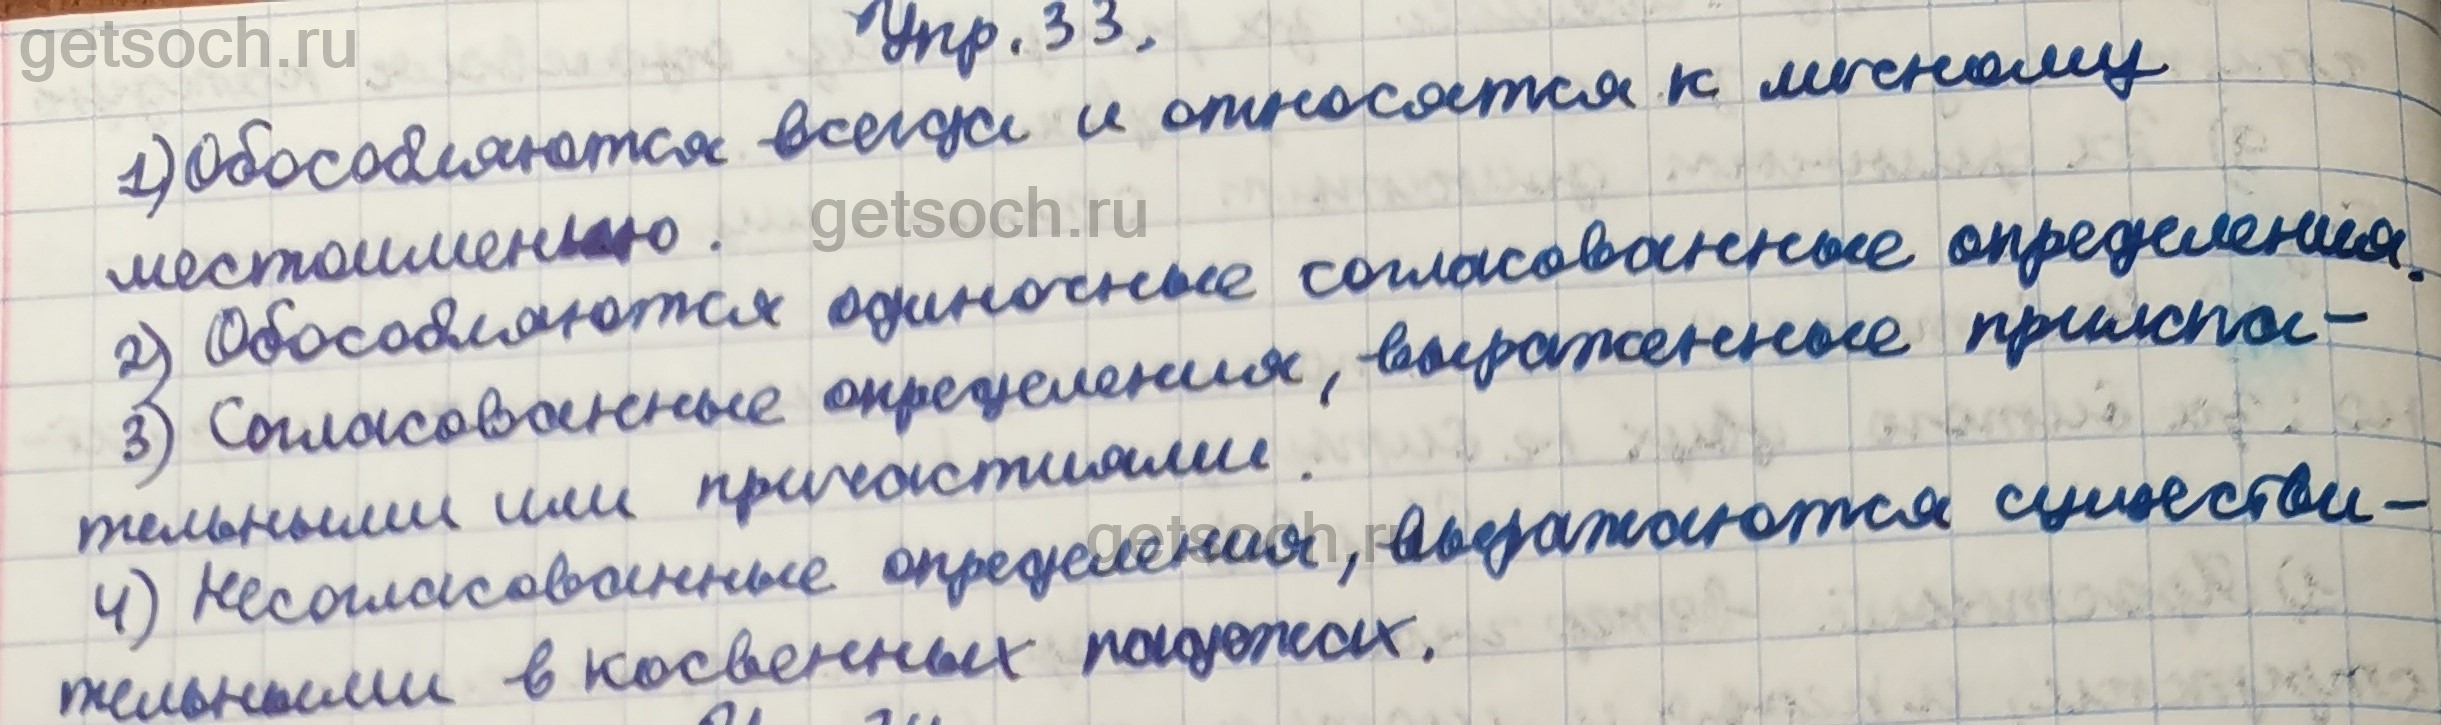 getsoch.ru
Упр. 33.
1) Обособляются всегда и относятся к личному
местоимению.
getsoch.ru
2) Обособляются одиночные согласованные определения.
3) Согласованные определения, выраженные прилага-
тельными или причастиями.
getsoch.ru
4) Несогласованные определения, выражаются существи-
тельными в косвенных падежах.